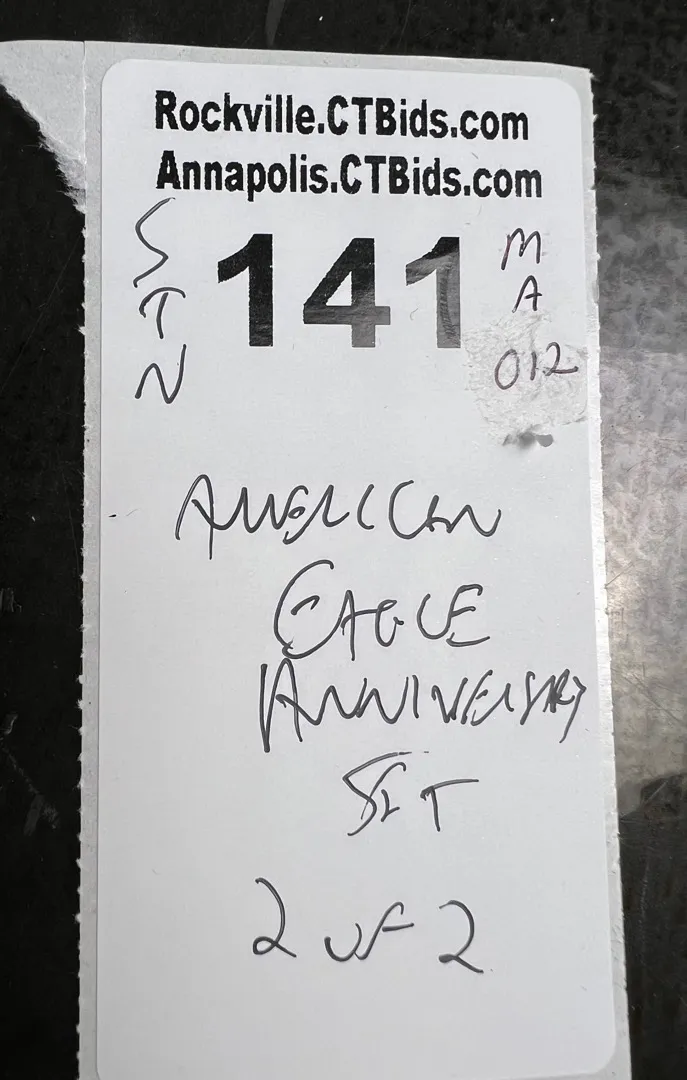 Rockville.CTBids.com
Annapolis.CTBids.com
141
M
A
012
AMERICAN
EAGLE
ANNIVERSARY
SET
2 of 2